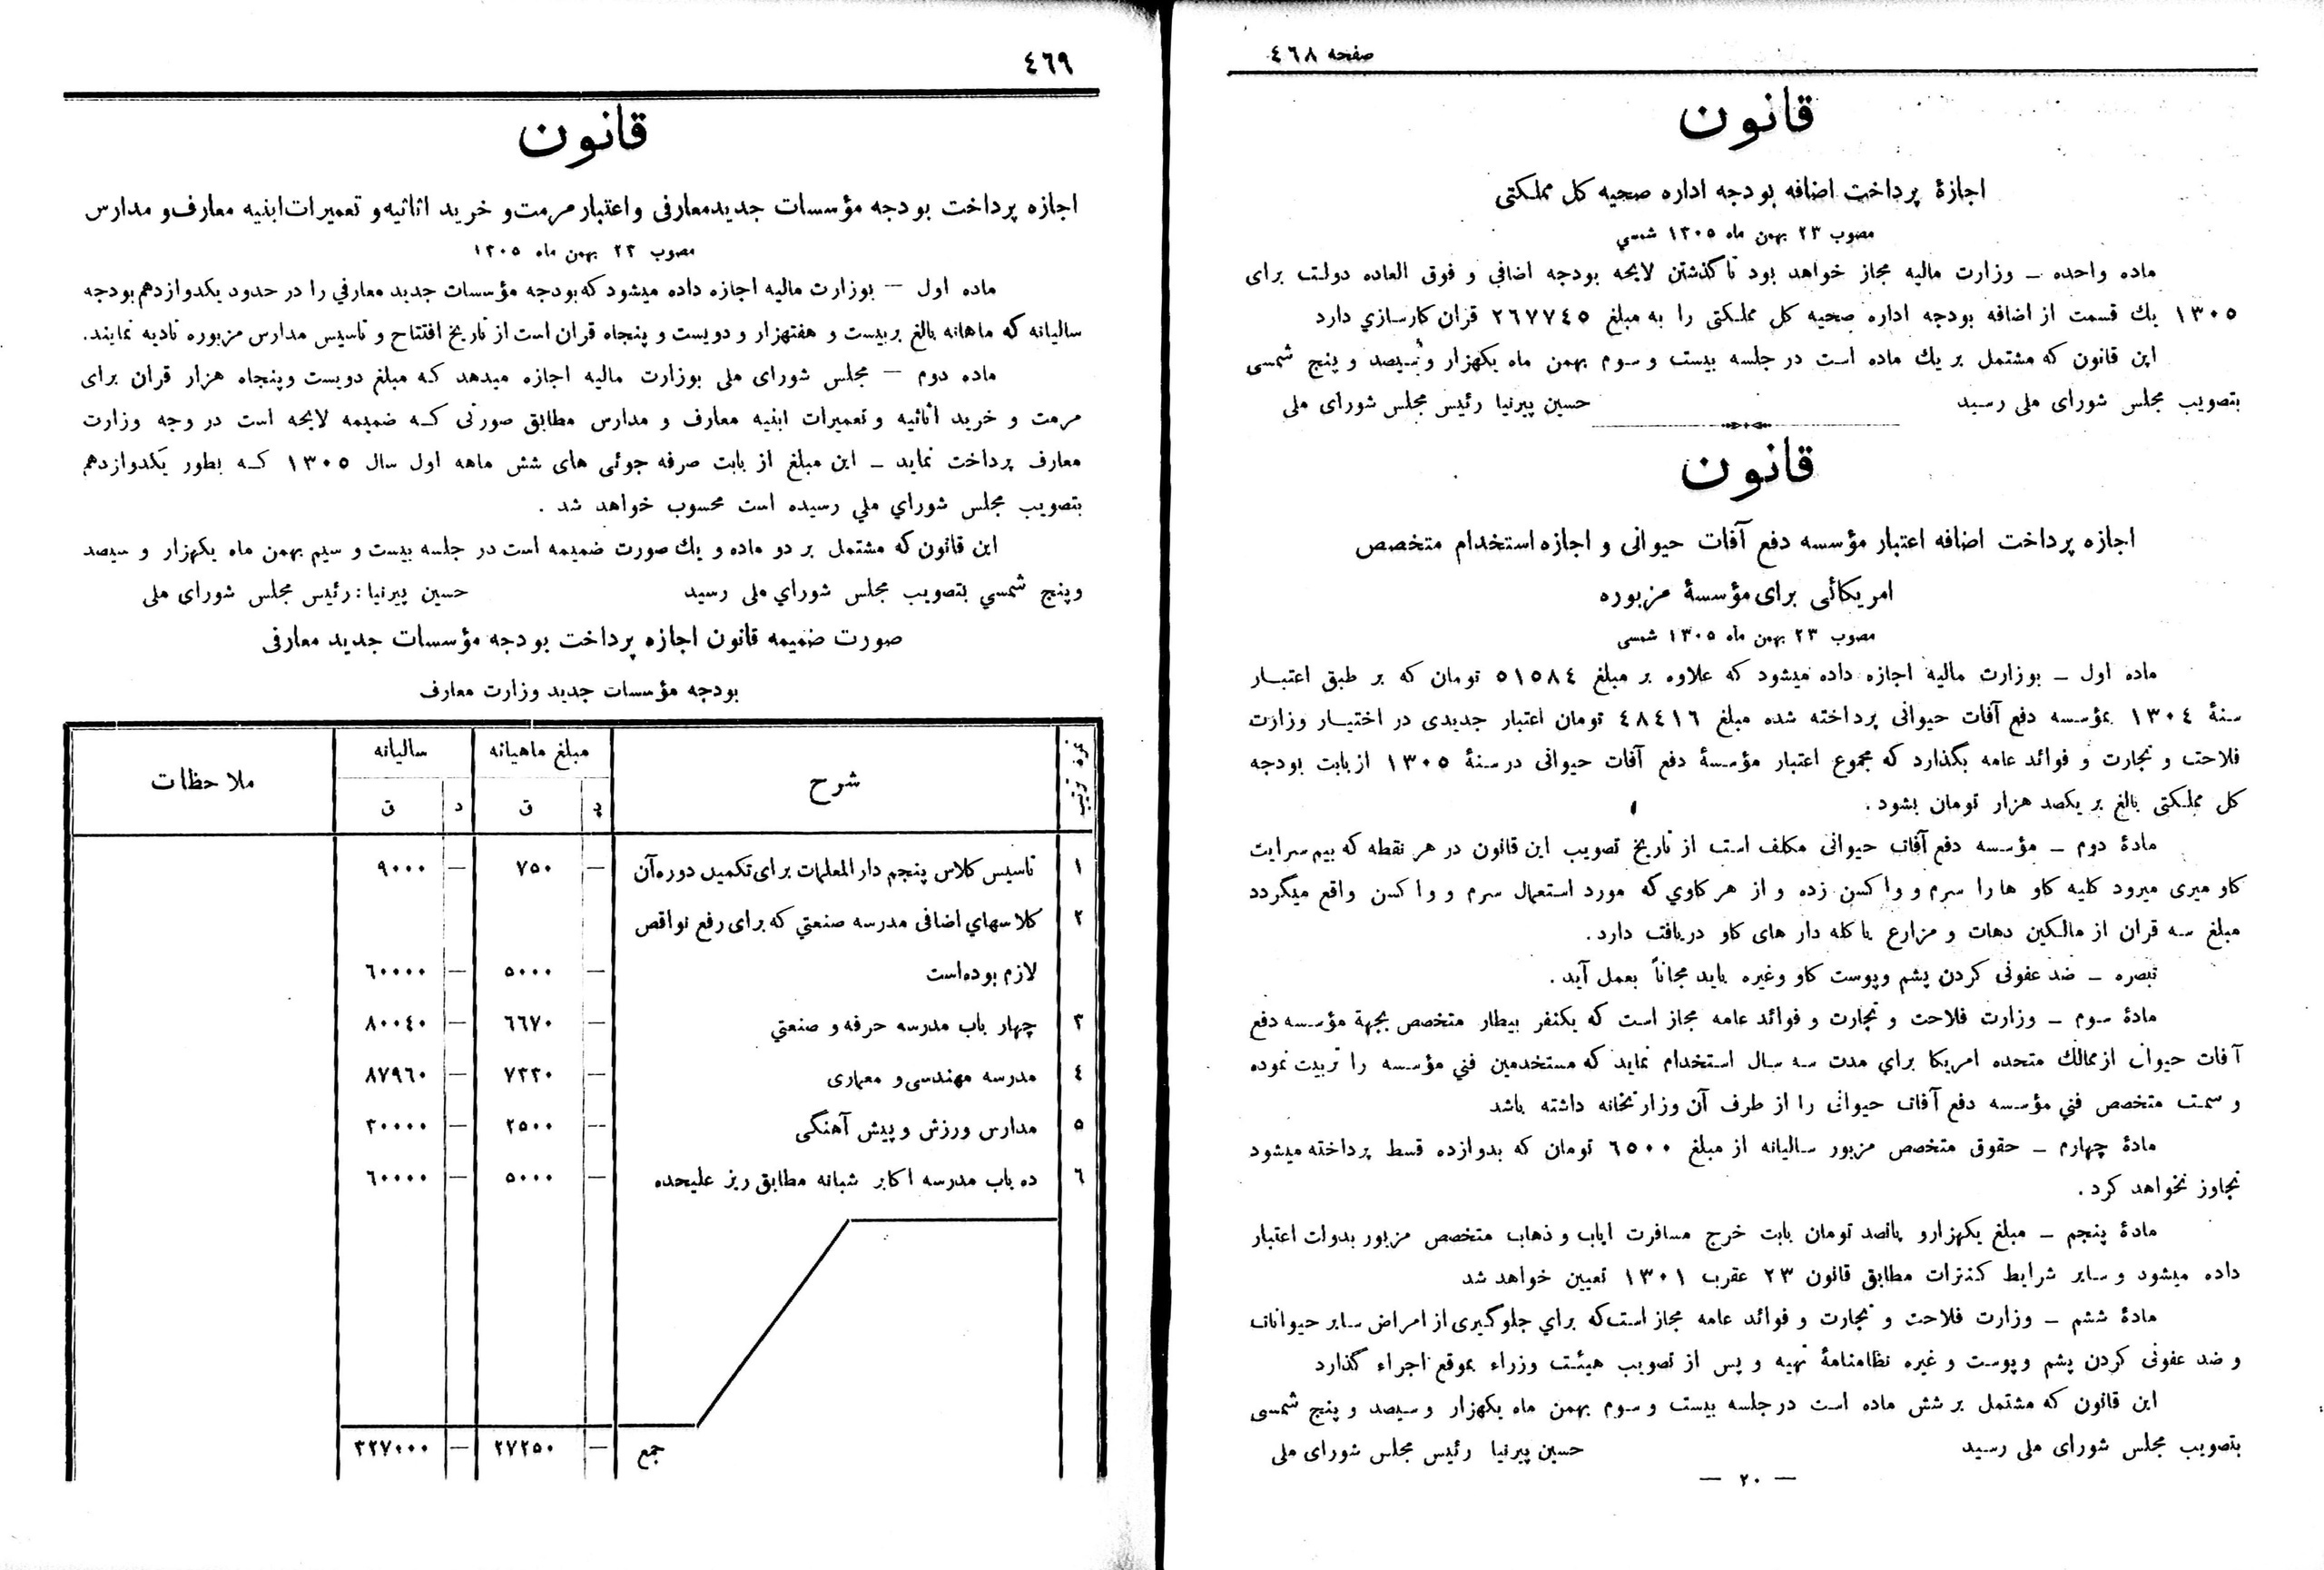 صفحه ٤٦٨
قانون
اجازهٔ پرداخت اضافه بودجه اداره صحیه کل مملکتی
مصوب ٢٣ بهمن ماه ١٣٠٥ شمسي
ماده واحده ــ وزارت مالیه مجاز خواهد بود تا گذشتن لایحه بودجه اضافی و فوق العاده دولت برای
١٣٠٥ یك قسمت از اضافه بودجه اداره صحیه کل مملکتی را به مبلغ ٢٦٧٧٤٥ قران کارسازي دارد
این قانون که مشتمل بر یك ماده است در جلسه بیست و سوم بهمن ماه یکهزار و سیصد و پنج شمسی
بتصویب مجلس شورای ملی رسید حسین پیرنیا رئیس مجلس شورای ملی
قانون
اجازه پرداخت اضافه اعتبار مؤسسه دفع آفات حیوانی و اجازه استخدام متخصص
امریکائی برای مؤسسهٔ مزبوره
مصوب ٢٣ بهمن ماه ١٣٠٥ شمسی
ماده اول ــ بوزارت مالیه اجازه داده میشود که علاوه بر مبلغ ٥١٥٨٤ تومان که بر طبق اعتبار
سنهٔ ١٣٠٤ بمؤسسه دفع آفات حیوانی پرداخته شده مبلغ ٤٨٤١٦ تومان اعتبار جدیدی در اختیار وزارت
فلاحت و تجارت و فوائد عامه بگذارد که مجموع اعتبار مؤسسهٔ دفع آفات حیوانی در سنهٔ ١٣٠٥ از بابت بودجه
کل مملکتی بالغ بر یکصد هزار تومان بشود .
مادهٔ دوم ــ مؤسسه دفع آفات حیوانی مکلف است از تاریخ تصویب این قانون در هر نقطه که بیم سرایت
کاو میری میرود کلیه کاو ها را سرم و واکسن زده و از هر کاوي که مورد استعمال سرم و واکسن واقع میگردد
مبلغ سه قران از مالکین دهات و مزارع یا کله دار های کاو دریافت دارد .
تبصره ــ ضد عفونی کردن پشم و پوست کاو وغیره باید مجاناً بعمل آید .
مادهٔ سوم ــ وزارت فلاحت و تجارت و فوائد عامه مجاز است که یکنفر بیطار متخصص بجههٔ مؤسسه دفع
آفات حیوان از ممالك متحده امریکا براي مدت سه سال استخدام نماید که مستخدمین فني مؤسسه را تربیت نموده
و سمت متخصص فني مؤسسه دفع آفات حیوانی را از طرف آن وزارتخانه داشته باشد
مادهٔ چهارم ــ حقوق متخصص مزبور سالیانه از مبلغ ٦٥٠٠ تومان که بدوازده قسط پرداخته میشود
تجاوز نخواهد کرد .
مادهٔ پنجم ــ مبلغ یکهزارو پانصد تومان بابت خرج مسافرت ایاب و ذهاب متخصص مزبور بدولت اعتبار
داده میشود و سایر شرایط کنترات مطابق قانون ٢٣ عقرب ١٣٠١ تعیین خواهد شد
مادهٔ ششم ــ وزارت فلاحت و تجارت و فوائد عامه مجاز است که براي جلوگیری از امراض سایر حیوانات
و ضد عفونی کردن پشم و پوست و غیره نظامنامهٔ تهیه و پس از تصویب هیئت وزراء بموقع اجراء گذارد
این قانون که مشتمل بر شش ماده است در جلسه بیست و سوم بهمن ماه یکهزار و سیصد و پنج شمسی
بتصویب مجلس شورای ملی رسید حسین پیرنیا رئیس مجلس شورای ملی
— ٢٠ —
٤٦٩
قانون
اجازه پرداخت بودجه مؤسسات جدید معارفی و اعتبار مرمت و خرید اثاثیه و تعمیرات ابنیه معارف و مدارس
مصوب ٢٣ بهمن ماه ١٣٠٥
ماده اول — بوزارت مالیه اجازه داده میشود که بودجه مؤسسات جدید معارفي را در حدود یکدوازدهم بودجه
سالیانه که ماهانه بالغ بر بیست و هفتهزار و دویست و پنجاه قران است از تاریخ افتتاح و تاسیس مدارس مزبوره تادیه نمایند.
ماده دوم — مجلس شورای ملی بوزارت مالیه اجازه میدهد که مبلغ دویست وپنجاه هزار قران برای
مرمت و خرید اثاثیه و تعمیرات ابنیه معارف و مدارس مطابق صورتی که ضمیمه لایحه است در وجه وزارت
معارف پرداخت نماید ــ این مبلغ از بابت صرفه جوئی های شش ماهه اول سال ١٣٠٥ که بطور یکدوازدهم
بتصویب مجلس شوراي ملي رسیده است محسوب خواهد شد .
این قانون که مشتمل بر دو ماده و یك صورت ضمیمه است در جلسه بیست و سیم بهمن ماه یکهزار و سیصد
وپنج شمسي بتصویب مجلس شوراي ملی رسید حسین پیرنیا : رئیس مجلس شورای ملی
صورت ضمیمه قانون اجازه پرداخت بودجه مؤسسات جدید معارفی
بودجه مؤسسات جدید وزارت معارف
نمره ترتیب شرح مبلغ ماهیانه سالیانه ملاحظات
د ق د ق
١ تاسیس کلاس پنجم دار المعلمات برای تکمیل دوره آن — ٧٥٠ — ٩٠٠٠
٢ کلاسهاي اضافی مدرسه صنعتي که برای رفع نواقص
لازم بوده است — ٥٠٠٠ — ٦٠٠٠٠
٣ چهار باب مدرسه حرفه و صنعتي — ٦٦٧٠ — ٨٠٠٤٠
٤ مدرسه مهندسی و معماری — ٧٣٣٠ — ٨٧٩٦٠
٥ مدارس ورزش و پیش آهنگی — ٢٥٠٠ — ٣٠٠٠٠
٦ ده باب مدرسه اکابر شبانه مطابق ریز علیحده — ٥٠٠٠ — ٦٠٠٠٠
جمع — ٢٧٢٥٠ — ٣٢٧٠٠٠